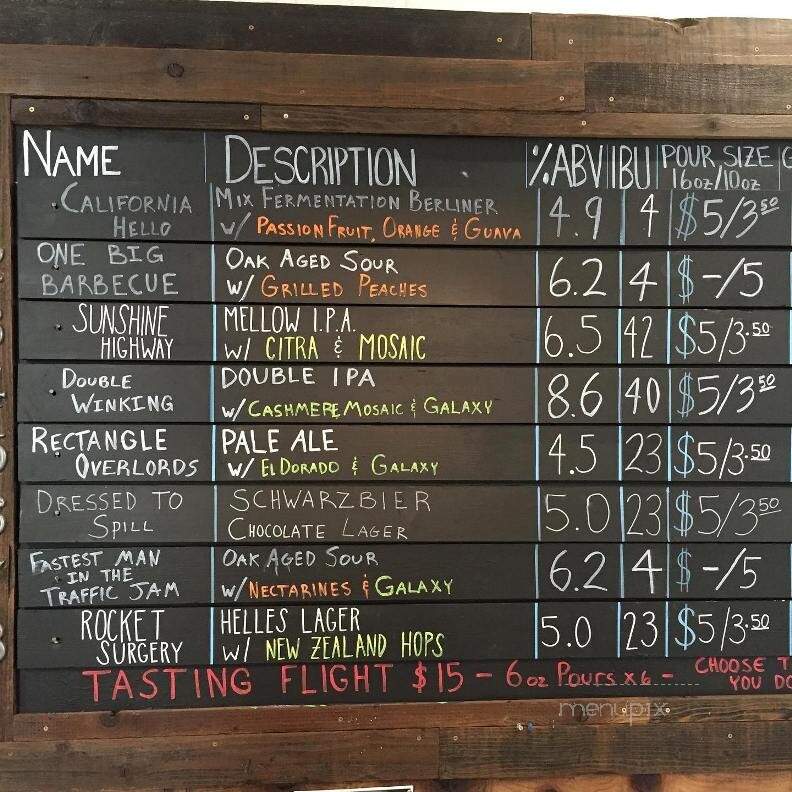 NAME DESCRIPTION %ABV IBU POUR SIZE
16oz/10oz
CALIFORNIA HELLO MIX FERMENTATION BERLINER
w/ PASSION FRUIT, ORANGE & GUAVA 4.9 4 $5/3.50
ONE BIG BARBECUE OAK AGED SOUR
w/ GRILLED PEACHES 6.2 4 $-/5
SUNSHINE HIGHWAY MELLOW I.P.A.
w/ CITRA & MOSAIC 6.5 42 $5/3.50
DOUBLE WINKING DOUBLE IPA
w/ CASHMERE MOSAIC & GALAXY 8.6 40 $5/3.50
RECTANGLE OVERLORDS PALE ALE
w/ EL DORADO & GALAXY 4.5 23 $5/3.50
DRESSED TO SPILL SCHWARZBIER
CHOCOLATE LAGER 5.0 23 $5/3.50
FASTEST MAN IN THE TRAFFIC JAM OAK AGED SOUR
w/ NECTARINES & GALAXY 6.2 4 $-/5
ROCKET SURGERY HELLES LAGER
w/ NEW ZEALAND HOPS 5.0 23 $5/3.50
TASTING FLIGHT $15 - 6oz Pours x 6 - ..... CHOOSE
YOU
menupix